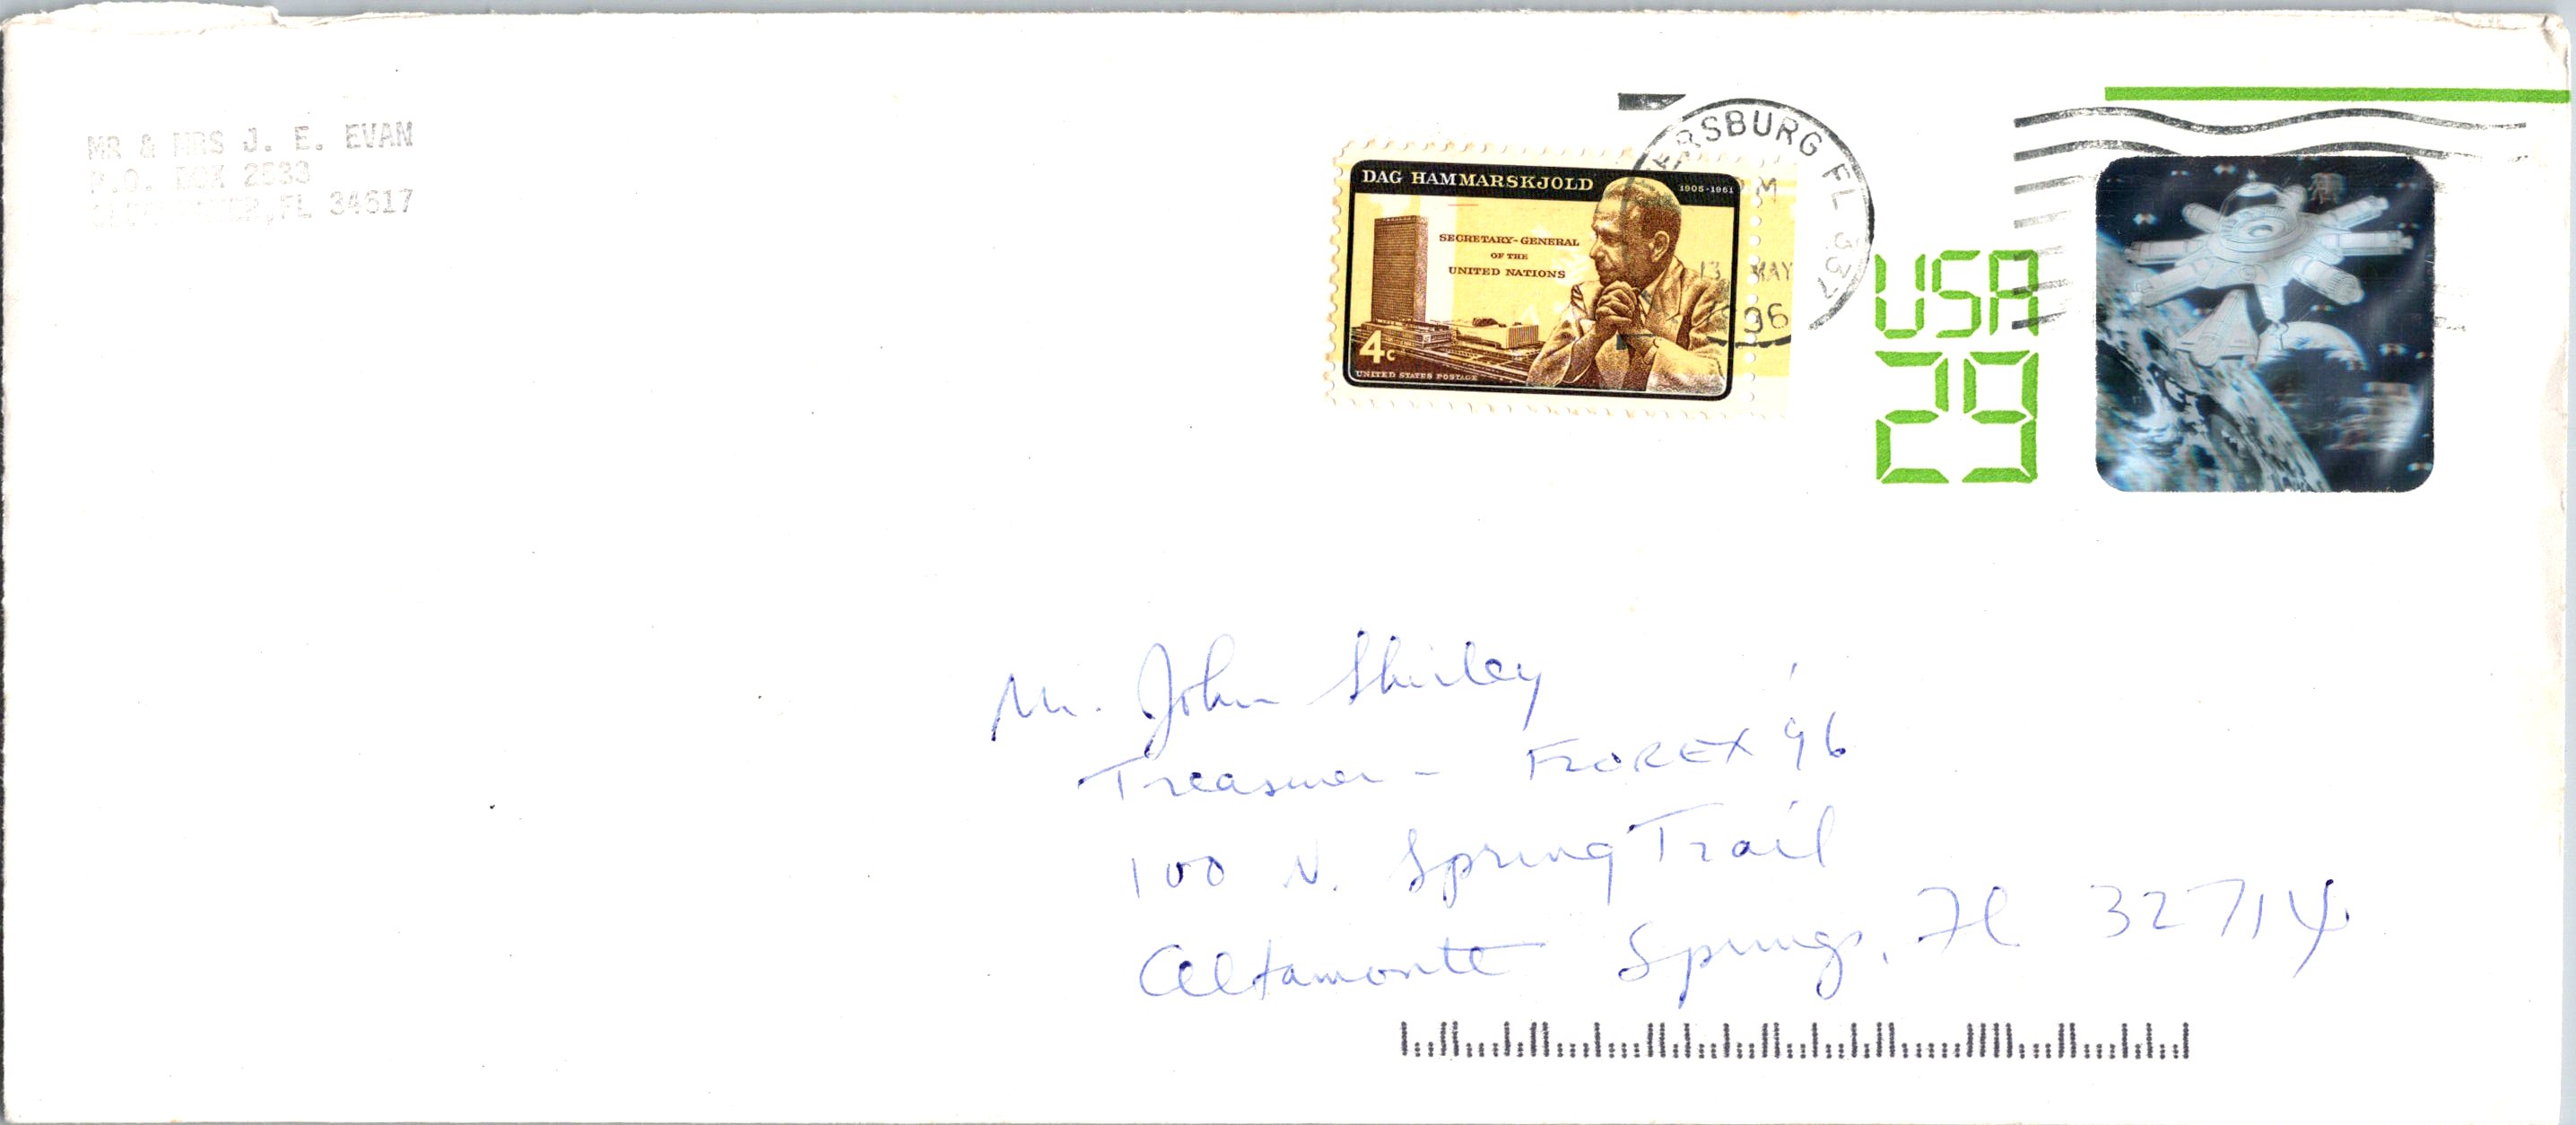 MR & MRS J. E. EVAM
P.O. BOX 2533
FL 34617
DAG HAMMARSKJOLD
1905-1961
SECRETARY-GENERAL
OF THE
UNITED NATIONS
4c
UNITED STATES POSTAGE
ERSBURG FL 337
PM
13 MAY
1996
USA
29
Mr. John Shirley
Treasurer - FLOREX '96
100 N. Spring Trail
Altamonte Springs, Fl 32714